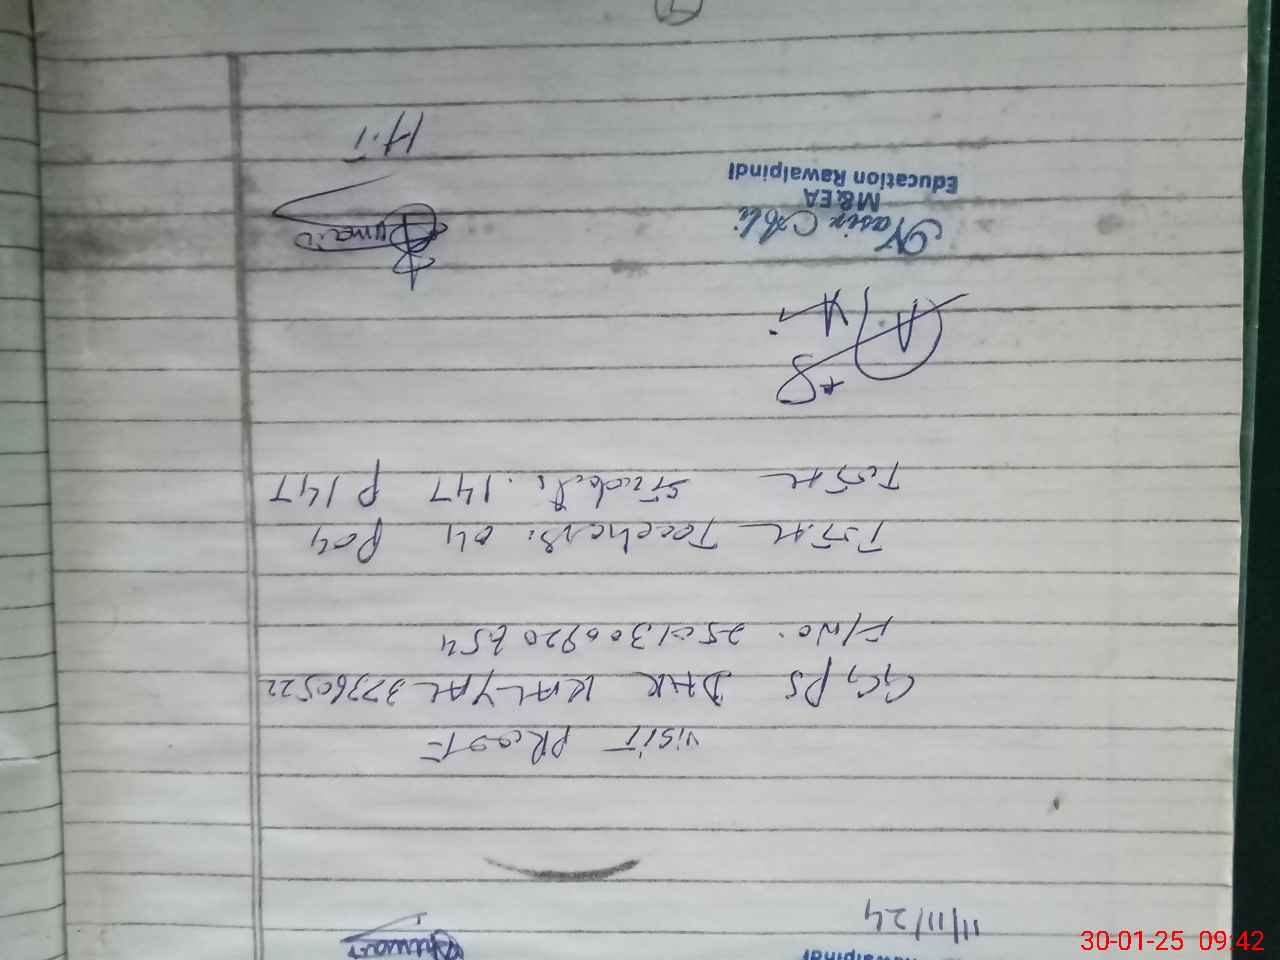 11/11/24
VISIT PROOF
GGPS DHK KALYAL 37360522
F/No. 2501300920654
TOTAL Teachers. 04 P04
TOTAL Students. 147 P147
Nasir Ali
M&EA
Education Rawalpindi
H.T
30-01-25 09:42